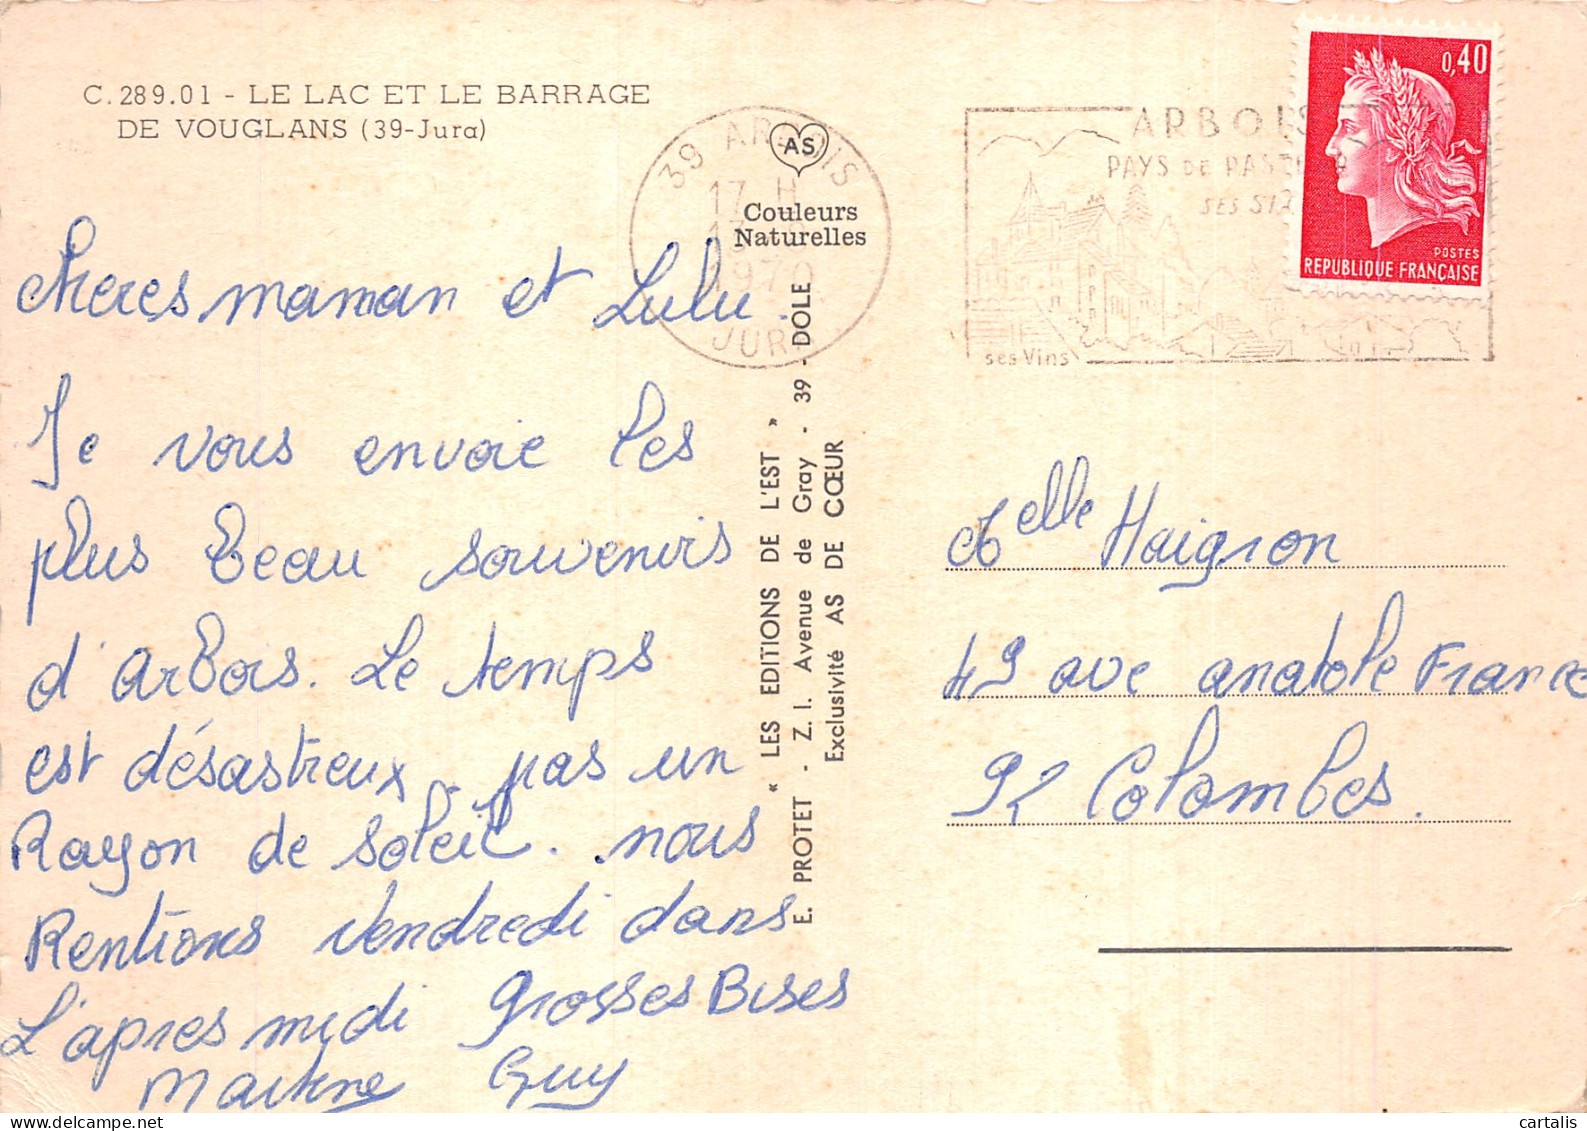 C.289.01 - LE LAC ET LE BARRAGE
DE VOUGLANS (39-Jura)
39 ARBOIS
17 H
1970
JURA
AS
Couleurs
Naturelles
ARBOIS
PAYS DE PASTEUR
SES
ses Vins
0,40
POSTES
REPUBLIQUE FRANÇAISE
Cheres maman et Lulu.
Je vous envoie les
plus beau souvenirs
d'arbois. Le temps
est désastreux. pas un
Rayon de soleil. nous
Rentrons vendredi dans
L'apres midi grosses Bises
Martine Guy
« LES EDITIONS DE L'EST »
E. PROTET - Z. I. Avenue de Gray - 39 - DOLE
Exclusivité AS DE CŒUR
Melle Haigron
49 ave anatole France
92 Colombes.
cartalis